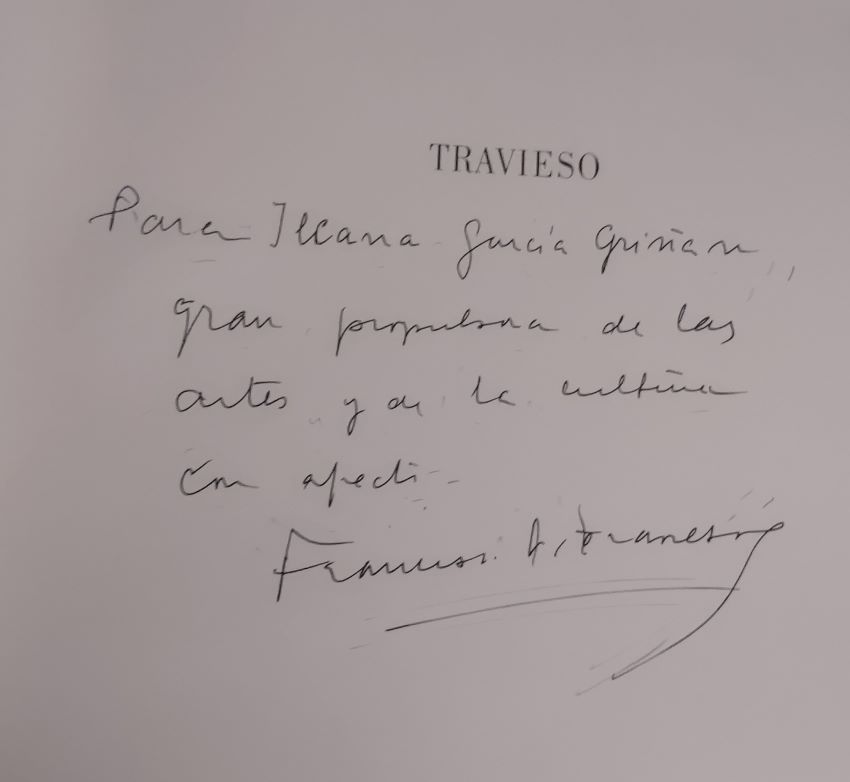 TRAVIESO
Para Ileana García Griñan,
gran propulsora de las
artes y de la cultura
Con afecto
Francisco A.